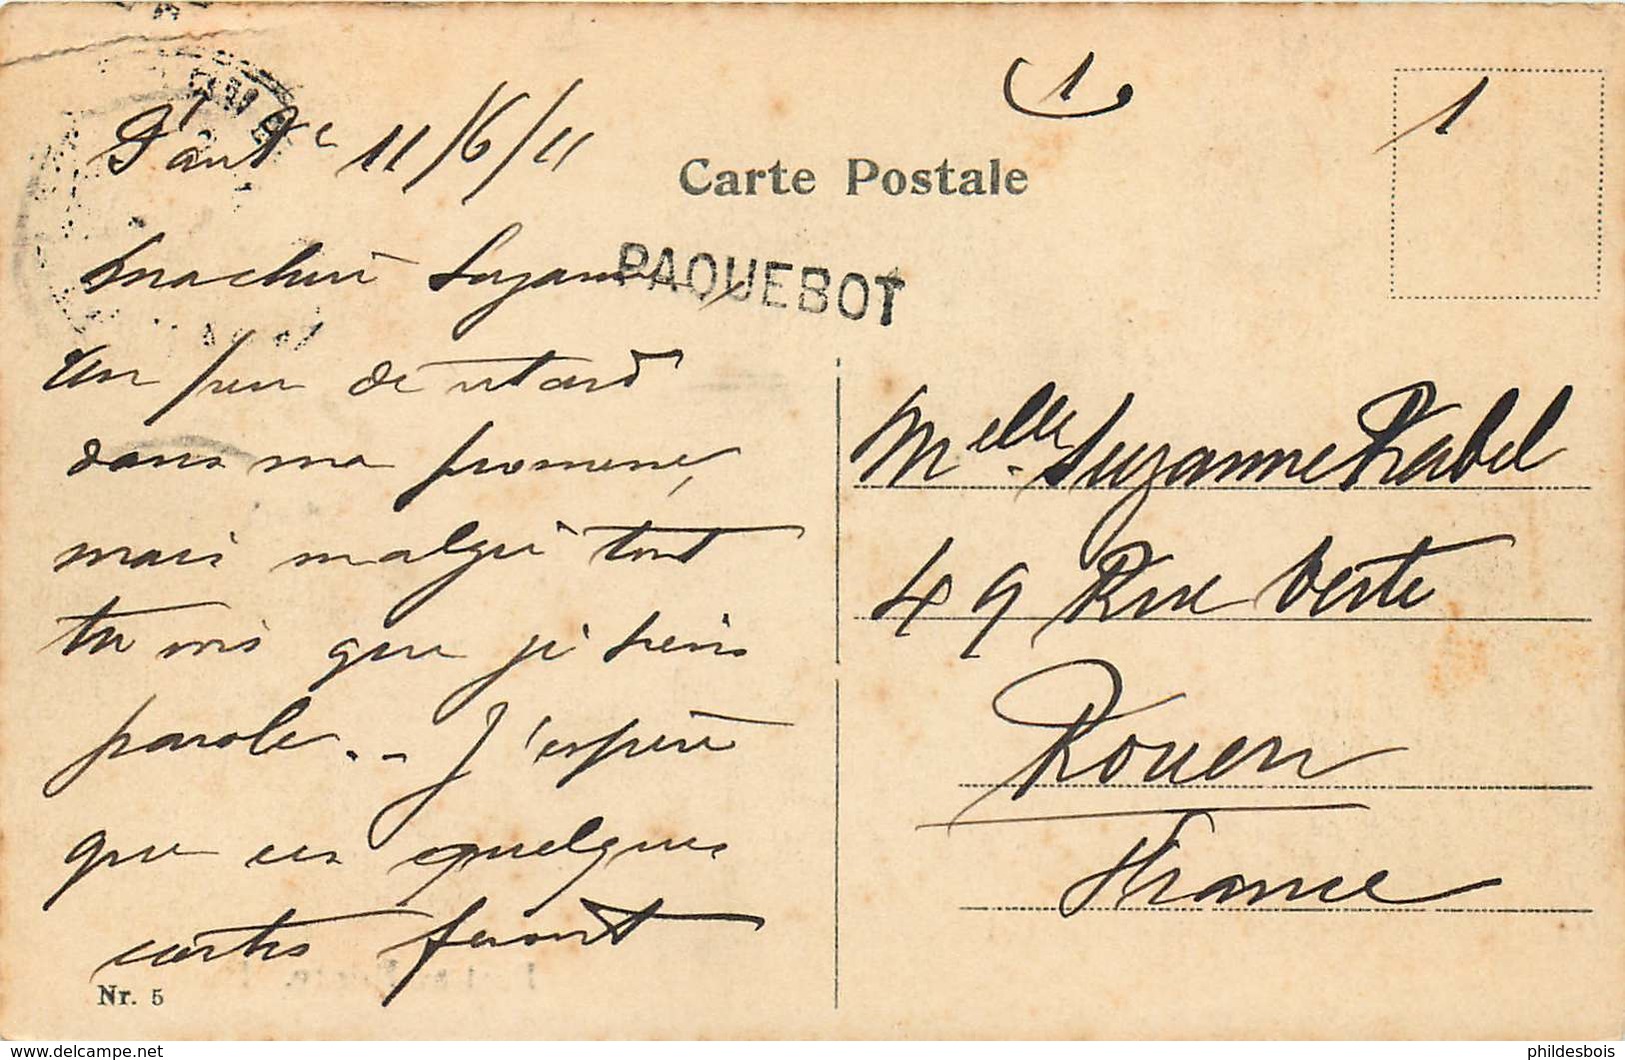 11/6/11
1
1
Carte Postale
PAQUEBOT
Ma chère Suzanne,
Un peu de retard
dans ma promenade,
mais malgré tout
tu vois que je tiens
parole.. J'espère
que ces quelques
cartes feront
Nr. 5
Melle Suzanne Rabel
49 Rue Verte
Rouen
France
delcampe.net
phildesbois